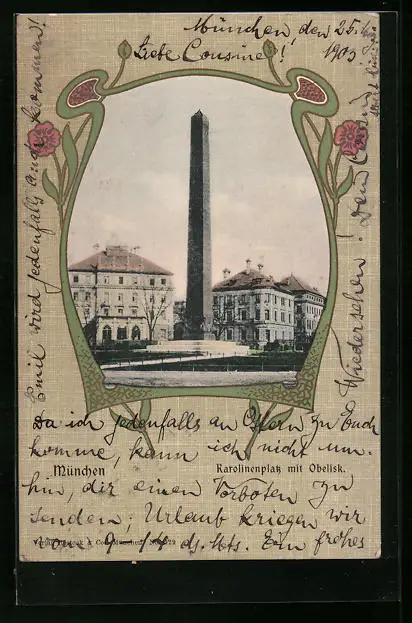 München, den 25.
1903
Liebe Cousine!
Da ich jedenfalls an Ostern zu Euch
komme, kann ich nicht um-
München
Karolinenplatz mit Obelisk.
hin, dir einen Vorboten zu
senden; Urlaub kriegen wir
vom 9 ds. Mts. Ein frohes
Wiedersehen! Dein
Emil wird jedenfalls auch kommen!